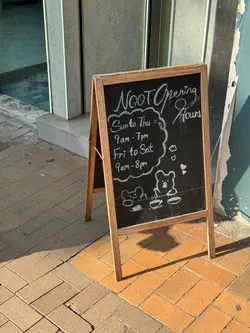 NOOT Opening Hours
Sun to Thu =
9am - 7pm
Fri to Sat
9am - 8pm